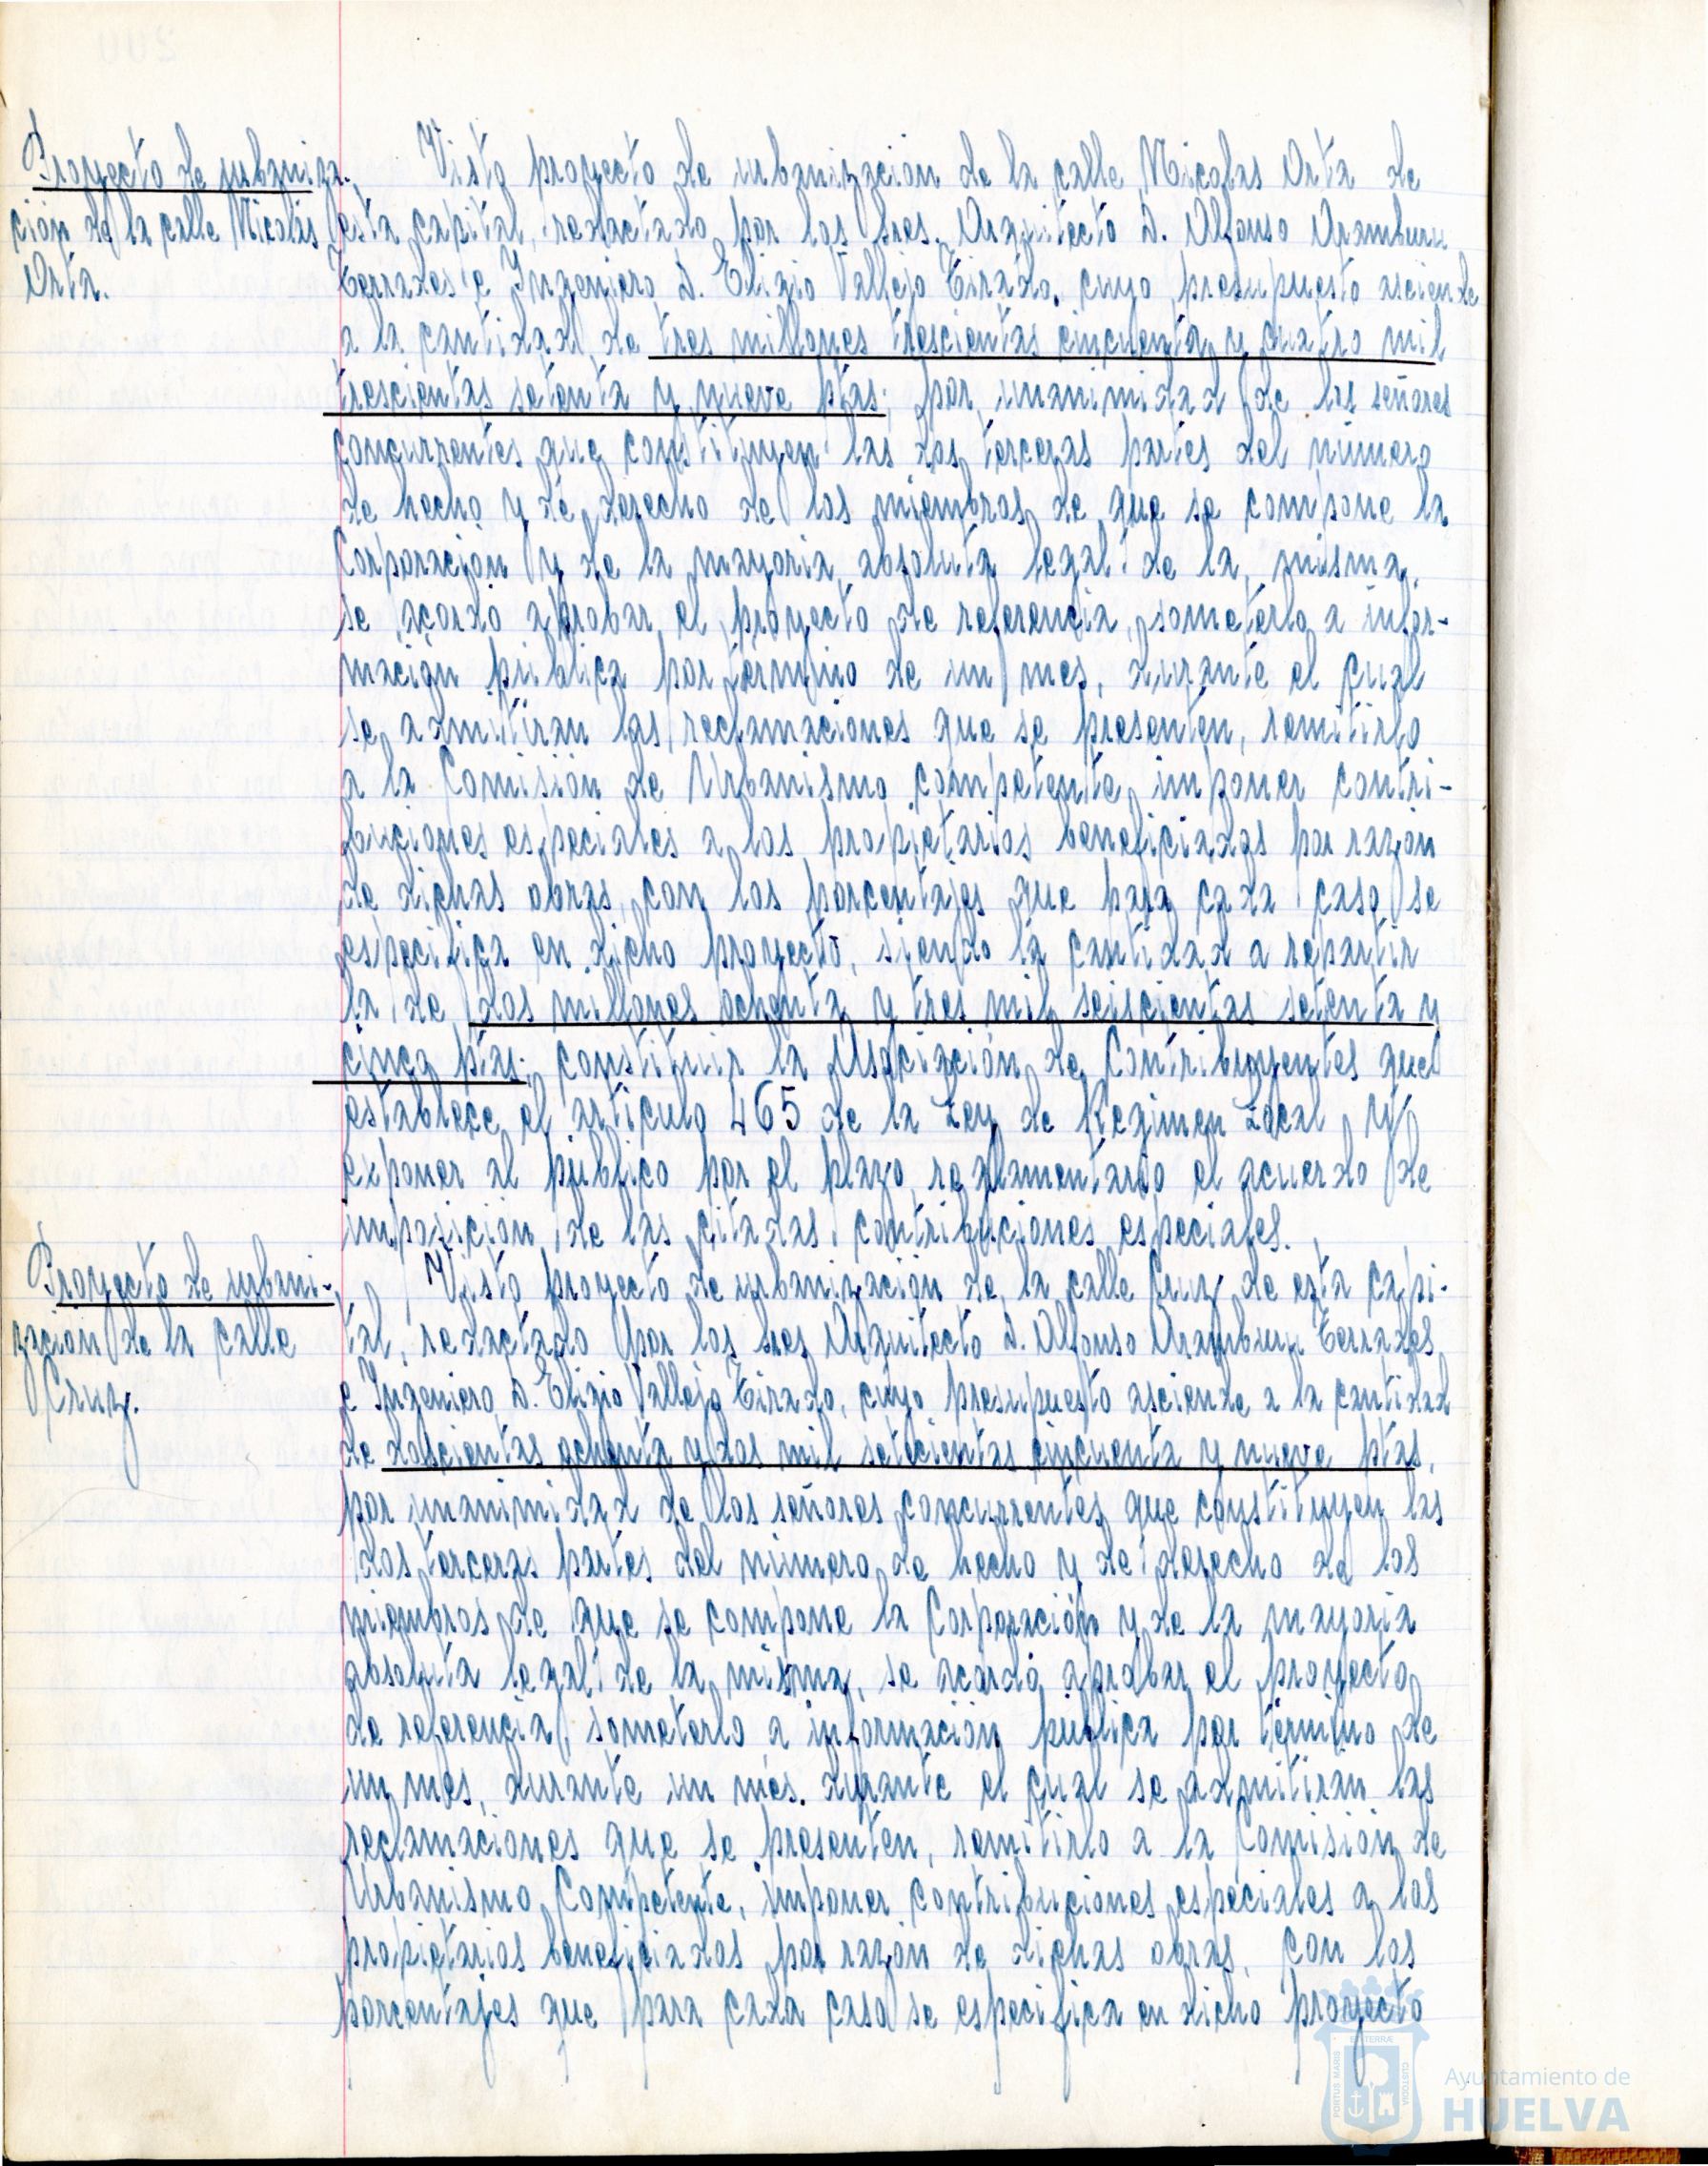 Proyecto de urbaniza-
ción de la calle Nicolás
Orta.
Visto proyecto de urbanización de la calle Nicolas Orta de
esta capital, redactado por los Sres. Arquitecto D. Alfonso Aramburu
Terrades e Ingeniero D. Eligio Vallejo Tirado, cuyo presupuesto asciende
a la cantidad de tres millones trescientas cincuenta y cuatro mil
trescientas setenta y nueve ptas; por unanimidad de los señores
concurrentes que constituyen las dos terceras partes del número
de hecho y de derecho de los miembros de que se compone la
Corporación y de la mayoria absoluta legal de la misma,
se acordó aprobar el proyecto de referencia, someterlo a infor-
mación pública por término de un mes, durante el cual
se admitiran las reclamaciones que se presenten, remitirlo
a la Comisión de Urbanismo competente, imponer contri-
buciones especiales a los propietarios beneficiados por razón
de dichas obras, con los porcentajes que para cada caso se
especifica en dicho proyecto, siendo la cantidad a repartir
la de dos millones ochenta y tres mil seiscientas setenta y
cinco ptas; constituir la Asociación de Contribuyentes que
establece el artículo 465 de la Ley de Regimen Local y
exponer al público por el plazo reglamentario el acuerdo de
imposición de las citadas contribuciones especiales.
Proyecto de urbani-
zación de la calle
Cruz.
Visto proyecto de urbanización de la calle Cruz de esta capi-
tal, redactado por los Sres Arquitecto D. Alfonso Aramburu Terrades
e Ingeniero D. Eligio Vallejo Tirado, cuyo presupuesto asciende a la cantidad
de doscientas ochenta y dos mil setecientas cincuenta y nueve ptas,
por unanimidad de los señores concurrentes que constituyen las
dos terceras partes del número de hecho y de derecho de los
miembros de que se compone la Corporación y de la mayoria
absoluta legal de la misma, se acordó aprobar el proyecto
de referencia, someterlo a información pública por término de
un mes, durante un mes. durante el cual se admitiran las
reclamaciones que se presenten, remitirlo a la Comisión de
Urbanismo Competente, imponer contribuciones especiales a los
propietarios beneficiados por razón de dichas obras, con los
porcentajes que para cada caso se especifica en dicho proyecto
PORTUS MARIS
ET TERRÆ
CUSTODIA
Ayuntamiento de
HUELVA